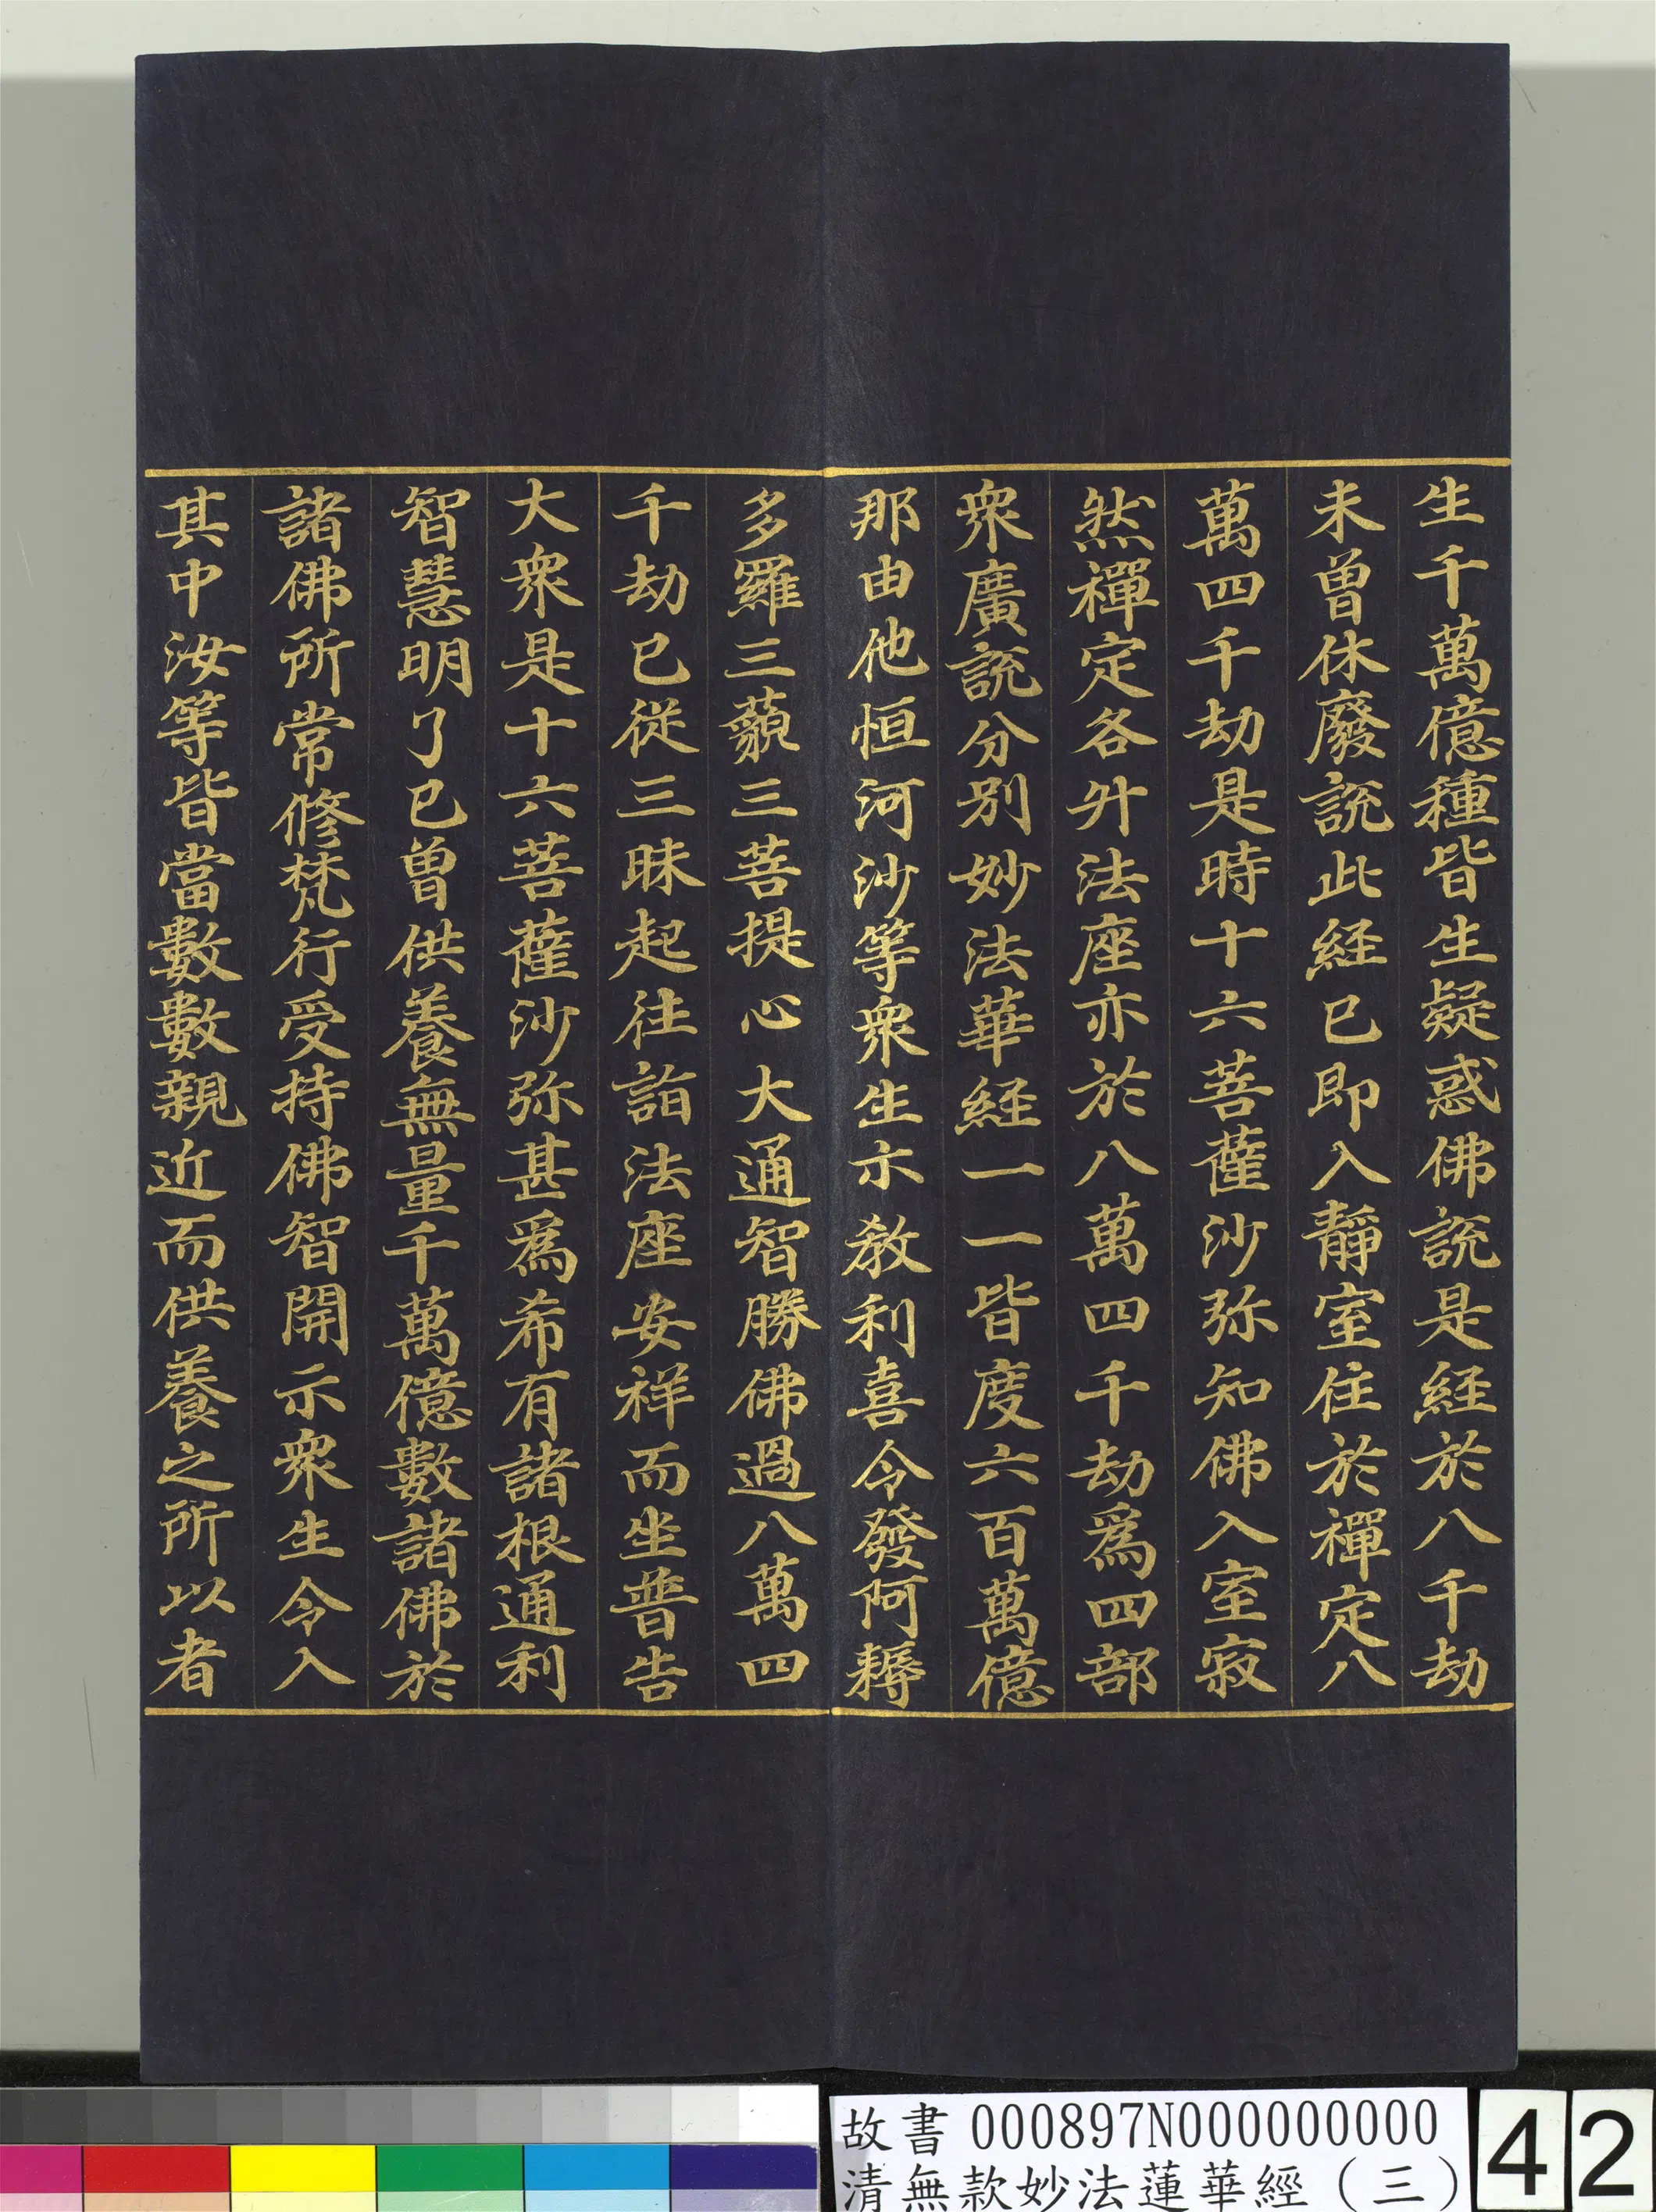 生千萬億種皆生疑惑佛說是経於八千劫
未曾休廢說此経已即入靜室住於禪定八
萬四千劫是時十六菩薩沙弥知佛入室寂
然禪定各升法座亦於八萬四千劫爲四部
衆廣說分別妙法華経一一皆度六百萬億
那由他恒河沙等衆生示教利喜令發阿耨
多羅三藐三菩提心大通智勝佛過八萬四
千劫已從三昧起往詣法座安祥而坐普告
大衆是十六菩薩沙弥甚爲希有諸根通利
智慧明了已曾供養無量千萬億數諸佛於
諸佛所常修梵行受持佛智開示衆生令入
其中汝等皆當數數親近而供養之所以者
故書 000897N000000000
清無款妙法蓮華經（三）
42